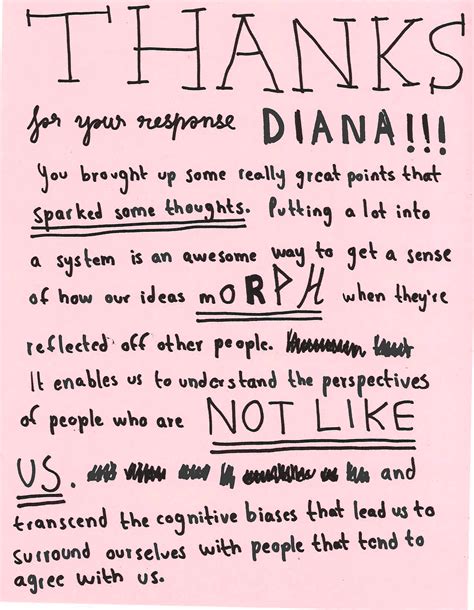 THANKS
for your response DIANA!!!
You brought up some really great points that
sparked some thoughts. Putting a lot into
a system is an awesome way to get a sense
of how our ideas mORPH when they're
reflected off other people.
It enables us to understand the perspectives
of people who are NOT LIKE
US. and
transcend the cognitive biases that lead us to
surround ourselves with people that tend to
agree with us.